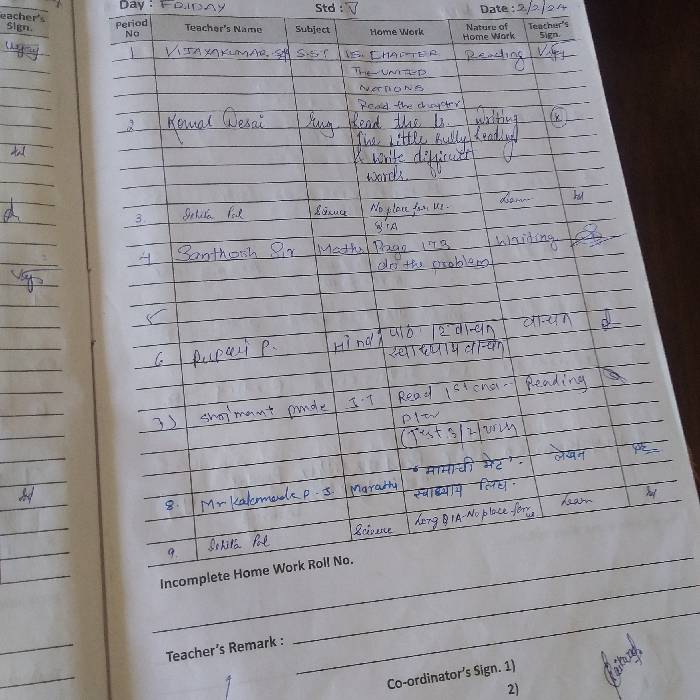 Day : FRIDAY Std : V Date : 2/2/24
Period No Teacher's Name Subject Home Work Nature of Home Work Teacher's Sign.
eacher's Sign.
1 VIJAYAKUMAR. SST CHAPTER Reading
THE UNITED
NATIONS
Read the chapter
2 Komal Desai Eng Read the ls. writing
The little Bully Reading
& write difficult
words.
3. Ishita Pal Science No place for us. Learn
Q/A
4 Santhosh Sir Maths Page 173 Writing
do the problem
5
6 Rupali P. Hindi पाठ 12 वाचन वाचन
स्वाध्याय वाचन
7) I.T Read 1st Reading
8. Mr P. J. Marathi "मामाची भेट" लेखन
स्वाध्याय लिहा.
9. Ishita Pal Science Long Q/A-No place for us Learn
Incomplete Home Work Roll No.
Teacher's Remark :
Co-ordinator's Sign. 1)
2)